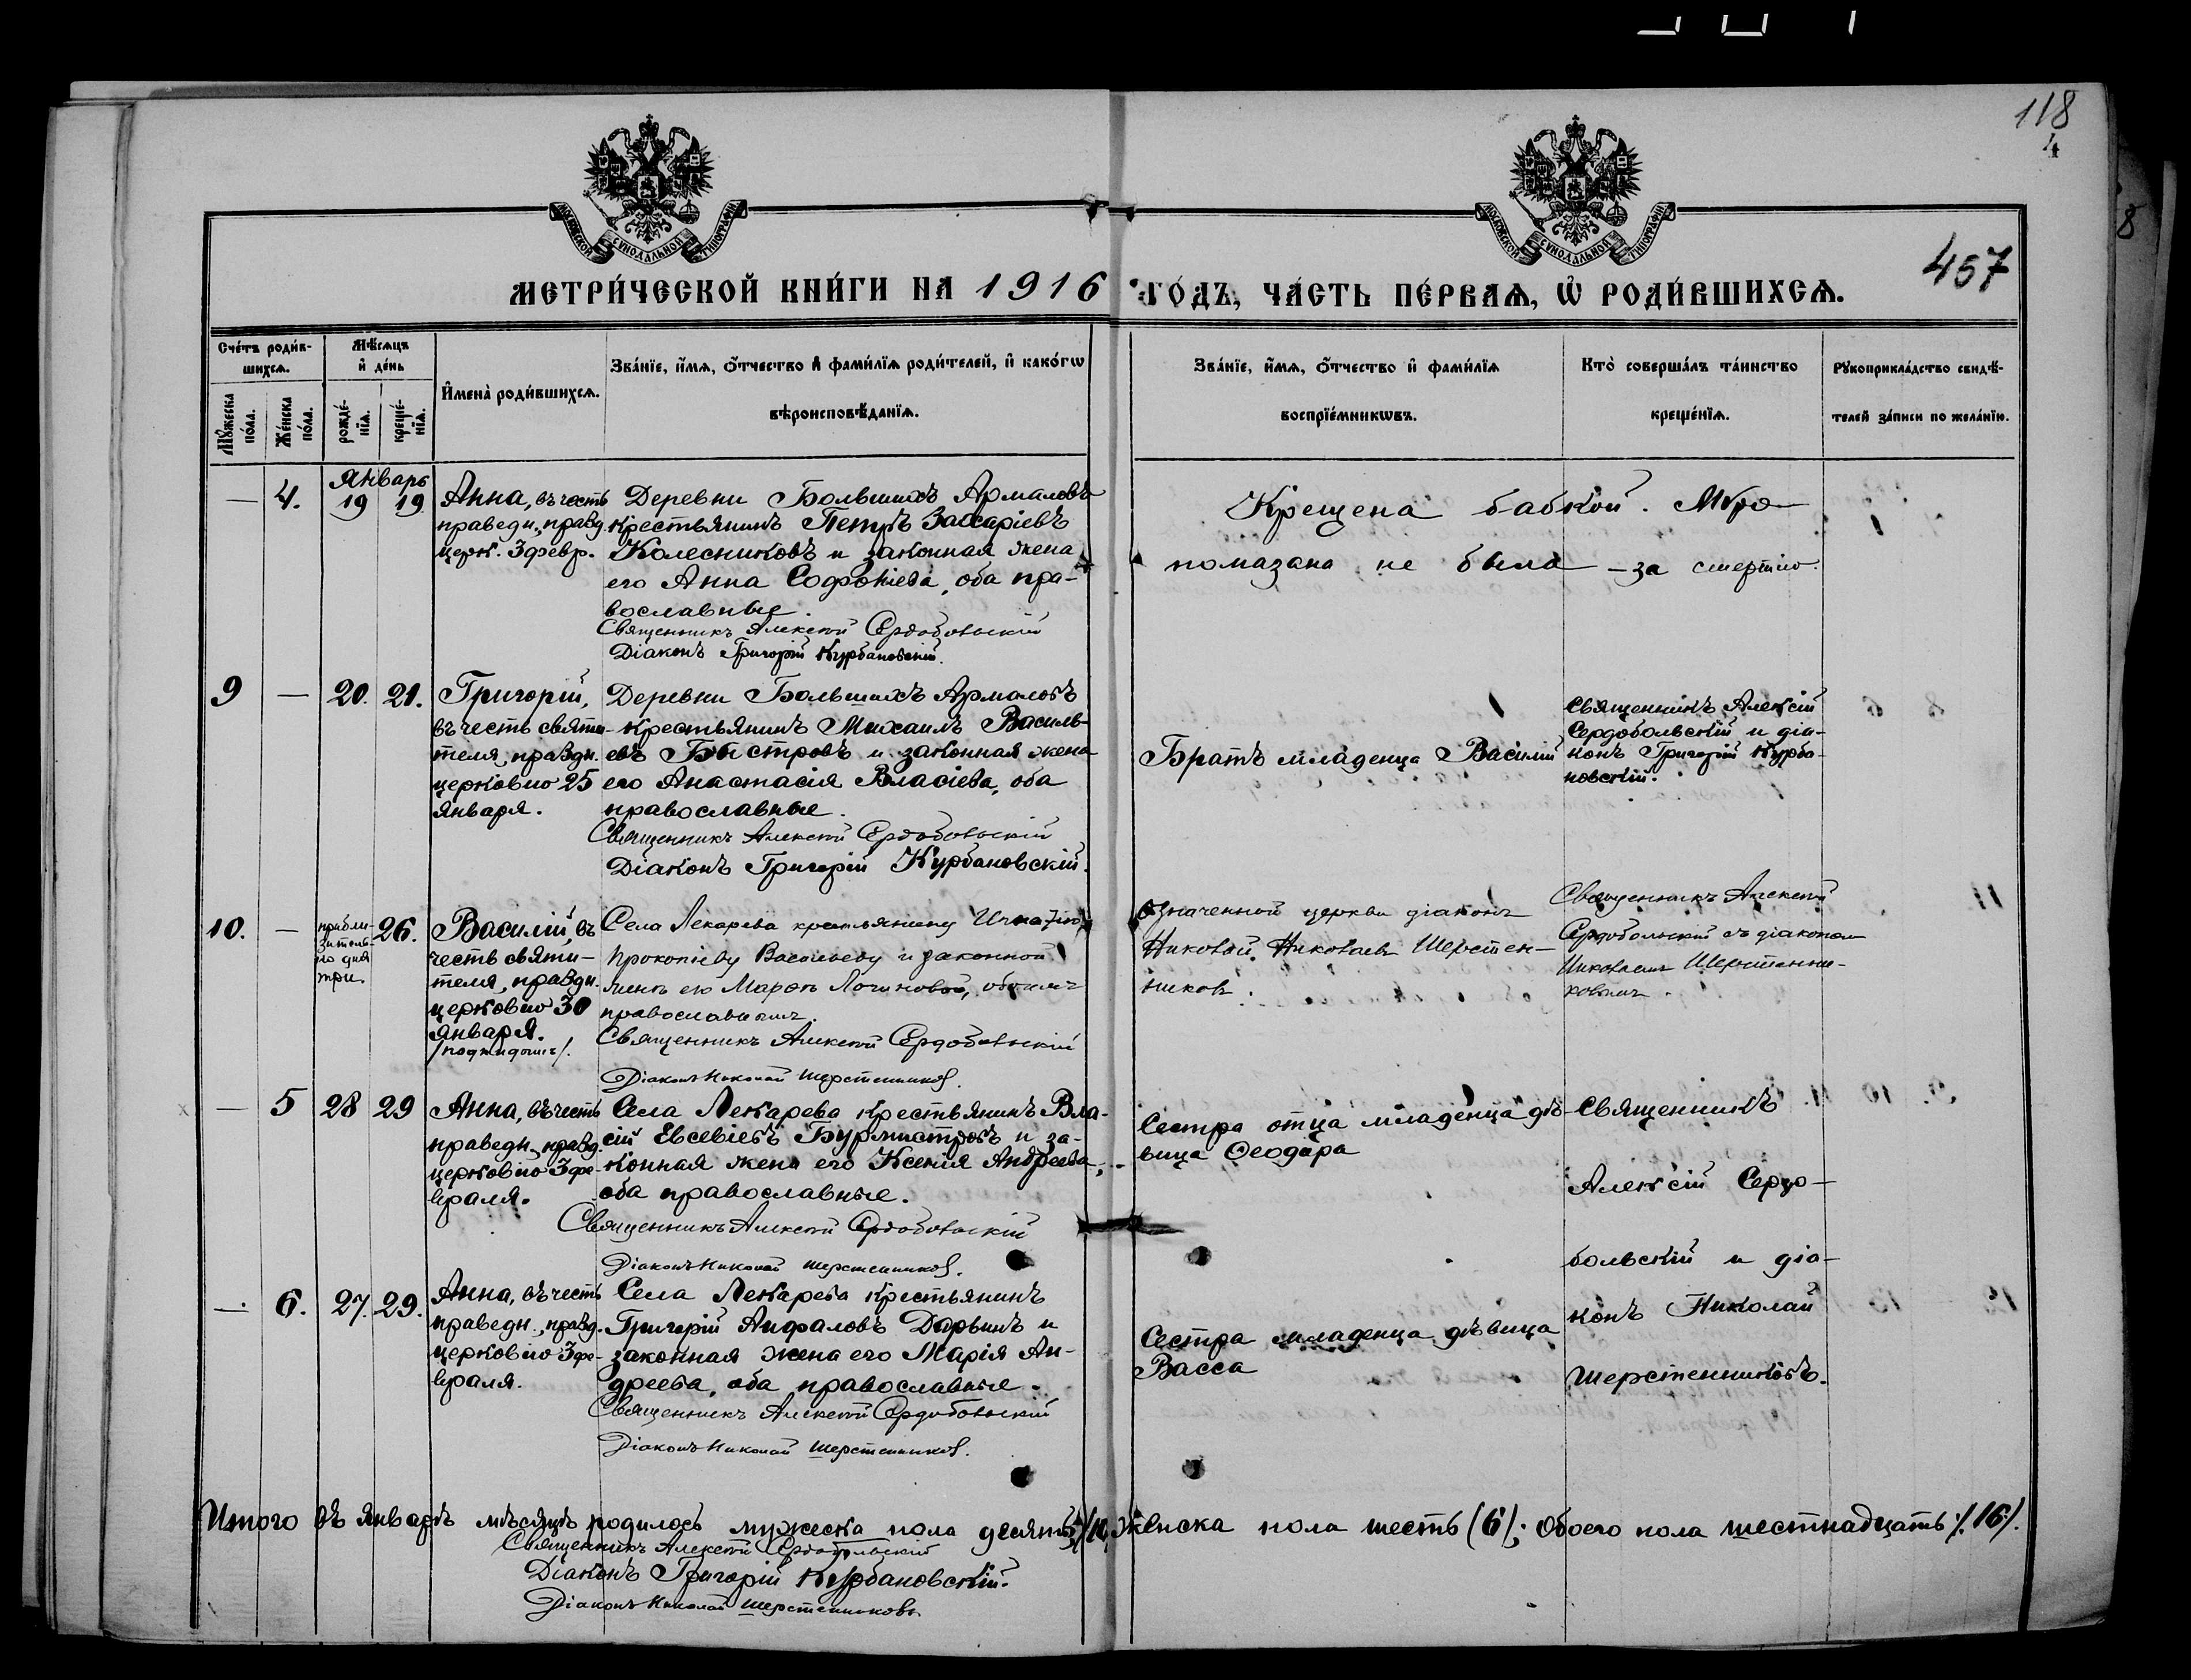 118
4
8
МОСКОВСКОЙ СѴНОДАЛЬНОЙ ТИПОГРАФІИ
МОСКОВСКОЙ СѴНОДАЛЬНОЙ ТИПОГРАФІИ
457
МЕТРИ́ЧЕСКОЙ КНИ́ГИ НА 1916 ГО́ДЪ, ЧА́СТЬ ПЕ́РВАѦ, Ѡ РОДИ́ВШИХСѦ.
Сче́тъ роди́в-
шихсѧ.
Мꙋ́жеска по́ла.
Же́нска по́ла.
Мѣ́сѧцъ и҆ де́нь
рожде́-нїѧ.
креще́-нїѧ.
И҆мена̀ роди́вшихсѧ.
Зва́нїе, и҆́мѧ, ѻ҆́тчество и҆ фами́лїѧ роди́телей, и҆ како́гѡ
вѣроисповѣ́данїѧ.
Зва́нїе, и҆́мѧ, ѻ҆́тчество и҆ фами́лїѧ
воспрїе́мникѡвъ.
Кто̀ соверша́лъ та́инство
креще́нїѧ.
Рꙋкоприкла́дство свидѣ́-
телей за́писи по жела́нїю.
Январь
— 4. 19 19
Анна, въ честь
праведн., празд.
церк. 3 февр.
Деревни Большихъ Армаловъ
крестьянинъ Петръ Захаріевъ
Колесниковъ и законная жена
его Анна Софоніева, оба пра-
вославные.
Священникъ Алексій Сердобольскій
Діаконъ Григорій Курбановскій.
Крещена бабкой. Мѵро-
помазана не была — за смертію.
9 — 20. 21.
Григорій,
въ честь святи-
теля, праздн.
церковію 25
января.
Деревни Большихъ Армаловъ
крестьянинъ Михаилъ Василь-
евъ Быстровъ и законная жена
его Анастасія Власіева, оба
православные.
Священникъ Алексій Сердобольскій
Діаконъ Григорій Курбановскій.
Братъ младенца Василій
Священникъ Алексій
Сердобольскій и діа-
конъ Григорій Курба-
новскій.
10. — прибли-
зитель-
но дня
три. 26.
Василій, въ
честь святи-
теля, праздн.
церковію 30
января.
/подкидышъ/.
Села Лекарева крестьянину Игнатію
Прокопіеву Васильеву и законной
женѣ его Марѳѣ Логиновой, обоимъ
православнымъ.
Священникъ Алексій Сердобольскій
Діаконъ Николай Шерстенниковъ.
Означенной церкви діаконъ
Николай Николаевъ Шерстен-
никовъ.
Священникъ Алексій
Сердобольскій съ діакономъ
Николаемъ Шерстенни-
ковымъ.
— 5 28 29
Анна, въ честь
праведн., празд.
церковію 3 фе-
враля.
Села Лекарева крестьянинъ Вла-
сій Евсевіевъ Бурмистровъ и за-
конная жена его Ксенія Андреева,
оба православные.
Священникъ Алексій Сердобольскій
Діаконъ Николай Шерстенниковъ.
Сестра отца младенца дѣ-
вица Ѳеодора
Священникъ
Алексій Сердо-
больскій и діа-
конъ Николай
Шерстенниковъ.
— 6. 27. 29.
Анна, въ честь
праведн., празд.
церковію 3 фе-
враля.
Села Лекарева крестьянинъ
Григорій Анфаловъ Дарьинъ и
законная жена его Марія Ан-
дреева, оба православные.
Священникъ Алексій Сердобольскій
Діаконъ Николай Шерстенниковъ.
Сестра младенца дѣвица
Васса
Итого въ январѣ мѣсяцѣ родилось мужеска пола десять /10/, женска пола шесть (6); Обоего пола шестнадцать /.16/.
Священникъ Алексій Сердобольскій
Діаконъ Григорій Курбановскій.
Діаконъ Николай Шерстенниковъ.